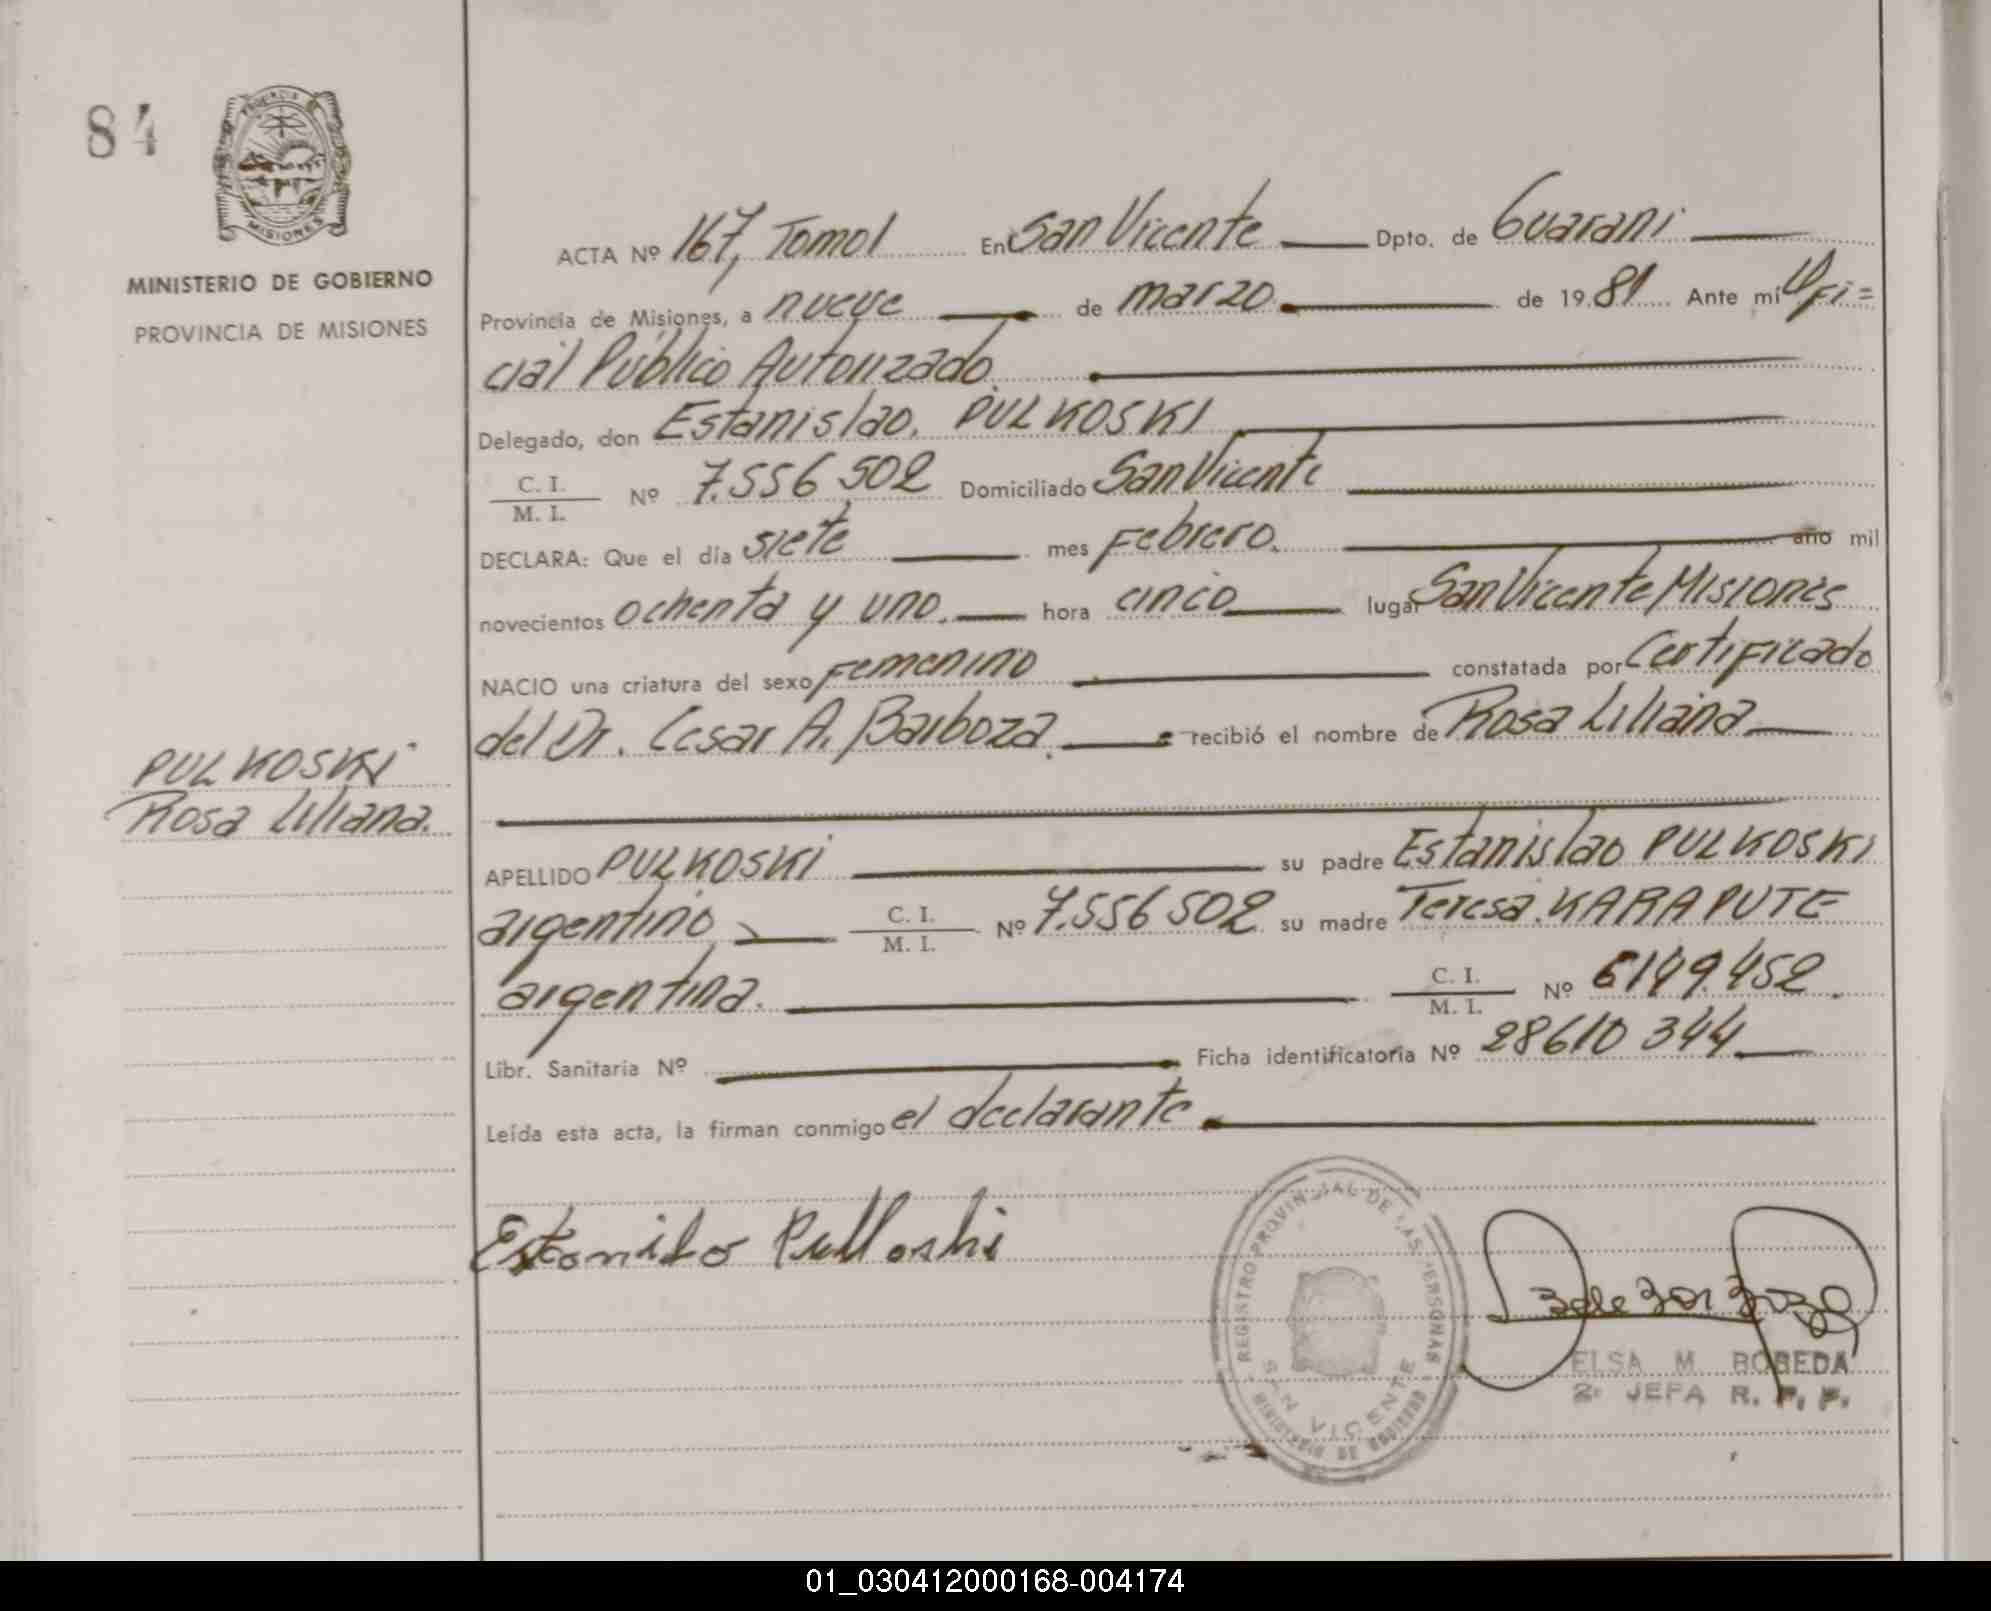 84
PROVINCIA DE
MISIONES
MINISTERIO DE GOBIERNO
PROVINCIA DE MISIONES
ACTA Nº 167, Tomo I En San Vicente Dpto. de Guarani
Provincia de Misiones, a nueve de marzo de 1981 Ante mi Ofi=
cial Público Autorizado
Delegado, don Estanislao. PULKOSKI
C. I.
M. I. Nº 7.556 502 Domiciliado San Vicente
DECLARA: Que el día siete mes Febrero. año mil
novecientos ochenta y uno. hora cinco lugar San Vicente Misiones
NACIO una criatura del sexo Femenino constatada por Certificado
del Dr. Cesar A. Barboza. recibió el nombre de Rosa Liliana
PULKOSKI
Rosa Liliana.
APELLIDO PULKOSKI su padre Estanislao PULKOSKI
argentino, C. I.
M. I. Nº 7.556 502 su madre Teresa. KARAPUTE
argentina. C. I.
M. I. Nº 6149.452.
Libr. Sanitaria Nº Ficha identificatoria Nº 28610 344
Leída esta acta, la firman conmigo el declarante
REGISTRO PROVINCIAL DE LAS PERSONAS
SAN VICENTE
MINISTERIO DE GOBIERNO
ELSA M. BOBEDA
2º JEFA R. P. P.
01_030412000168-004174